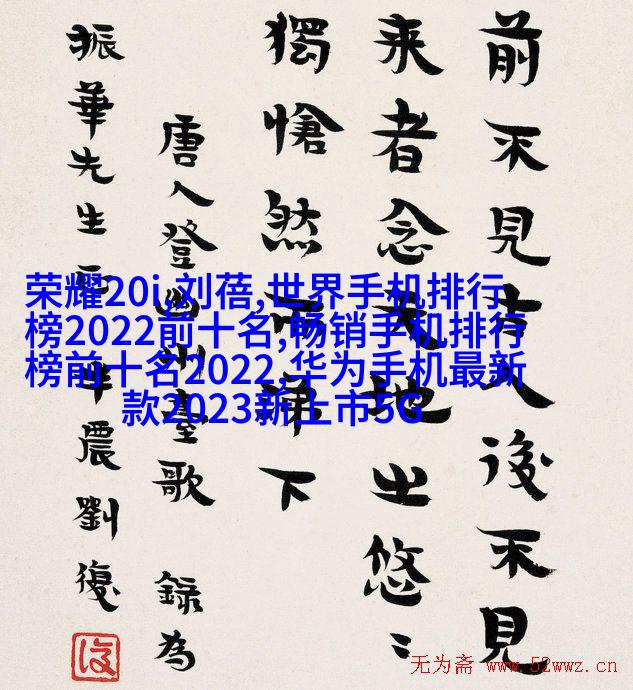 前不見古人後不見
来者念天地之悠〻
獨愴然而涕下
唐人登幽州臺歌 錄為
振華先生正 半農劉復
荣耀20i,刘蓓,世界手机排行
榜2022前十名,畅销手机排行
榜前十名2022,华为手机最新
款2023新上市5G
无为斋 www.52wwz.cn